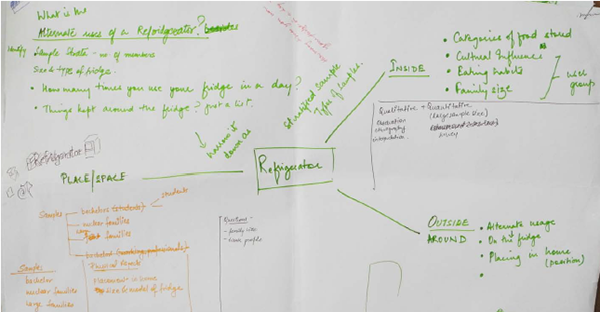 What is the
Alternate uses of a Refridgerator?
Identify Sample Strata - no of members
Size & type of fridge.
• How many times you use your fridge in a day?
• Things kept around the fridge? Just a list.
narrow it
down as
Stratified sample
Types of samples.
INSIDE
• Categories of food stored
• Cultural Influence
• Eating habits
• Family size
user
group
Qualitative + Quantitative
(large sample size)
observation
ethnography
interpretation
survey
Refrigerator
Refridgerator
PLACE/SPACE
Samples
bachelors (students)
students
nuclear families
large families
bachelors (working professionals)
Samples
bachelor
nuclear families
large families
Physical Aspects
Placement in home
Size & model of fridge
Questions -
- family size
- home profile
OUTSIDE
AROUND
• Alternate usage
• On the fridge
• Placing in home
(position)